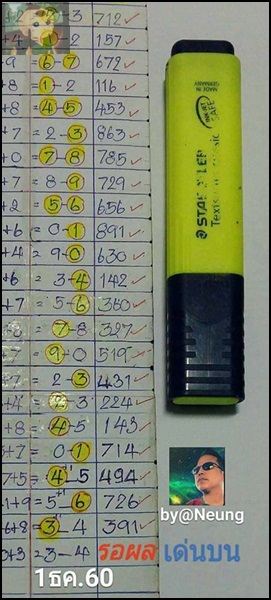 +2 = 2-3 712
+4 = 1-2 157
+9 = 6-7 672
+8 = 1-2 116
+8 = 4-5 453
+7 = 2-3 863
+0 = 7-8 785
+7 = 8-9 729
+2 = 5-6 656
+6 = 0-1 891
+4 = 9-0 630
+6 = 3-4 142
+7 = 5-6 360
+8 = 7-8 327
7 = 9-0 519
+7 = 2-3 431
+4 = 2-3 224
+8 = 4-5 143
5+7 = 0-1 714
7+5 = 4-5 494
1+9 = 5-6 726
6+8 = 3-4 391
0+3 = 3-4 รอผล เด่นบน
1ธค.60
MADE IN GERMANY
INKJET SAFE
STAEDTLER
by@Neung